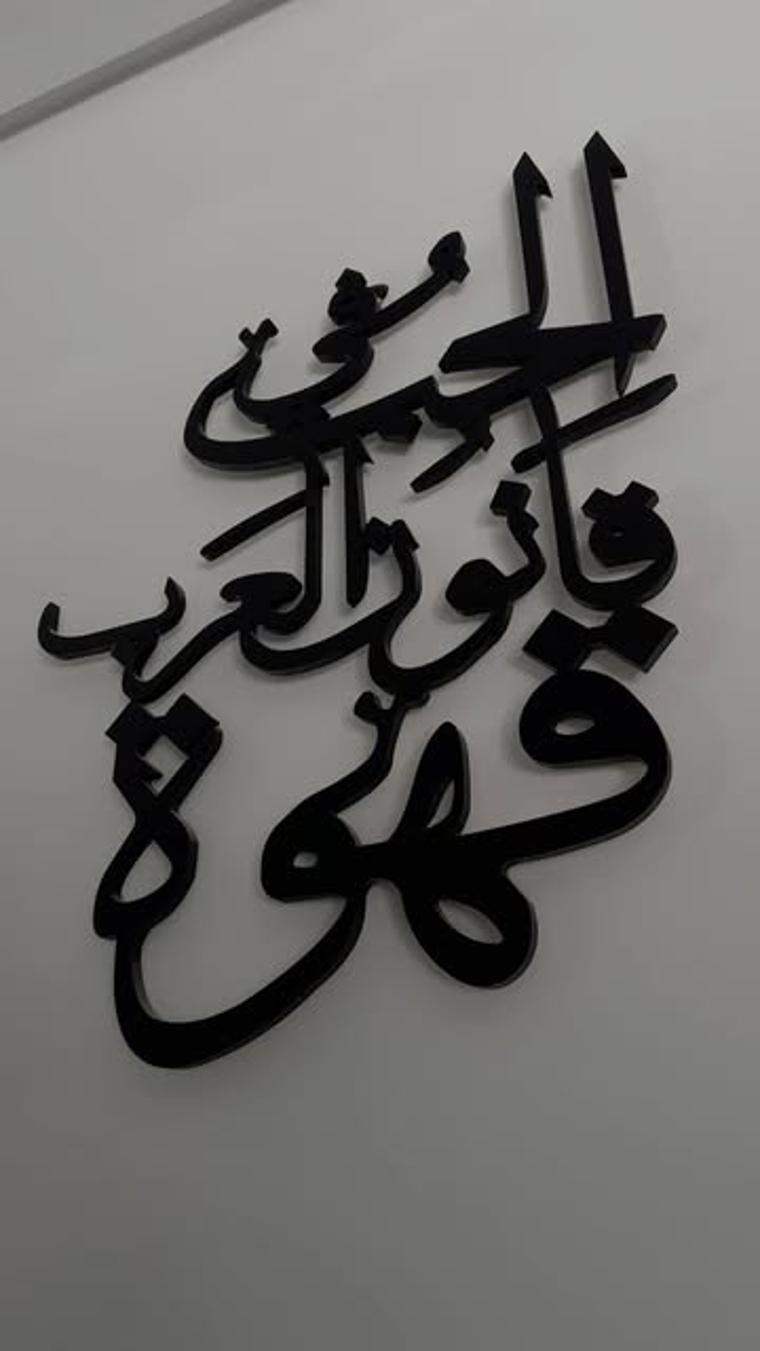 الحب في
قانون العرب
قهوة